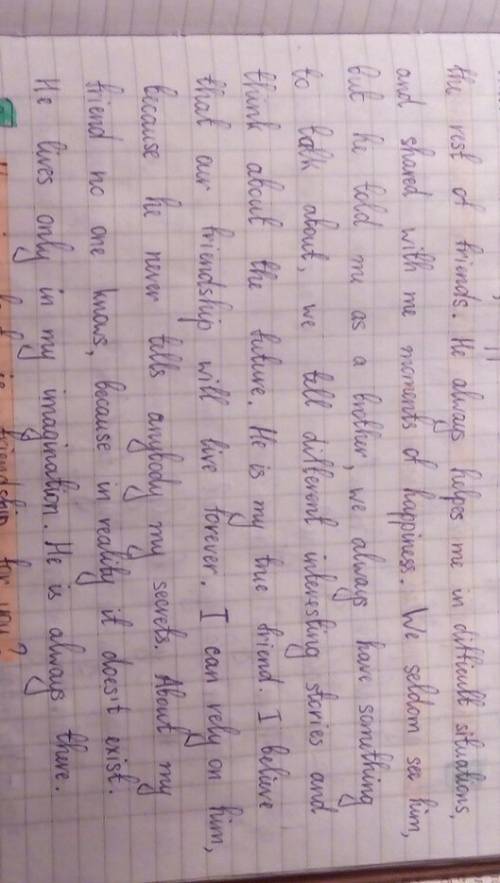 the rest of friends. He always helps me in difficult situations,
and shared with me moments of happiness. We seldom see him,
but he told me as a brother, we always have something
to talk about, we tell different interesting stories and
think about the future. He is my true friend. I believe
that our friendship will live forever. I can rely on him,
because he never tells anybody my secrets. About my
friend no one knows, because in reality it doesit exist.
He lives only in my imagination. He is always there.
friendship for you?